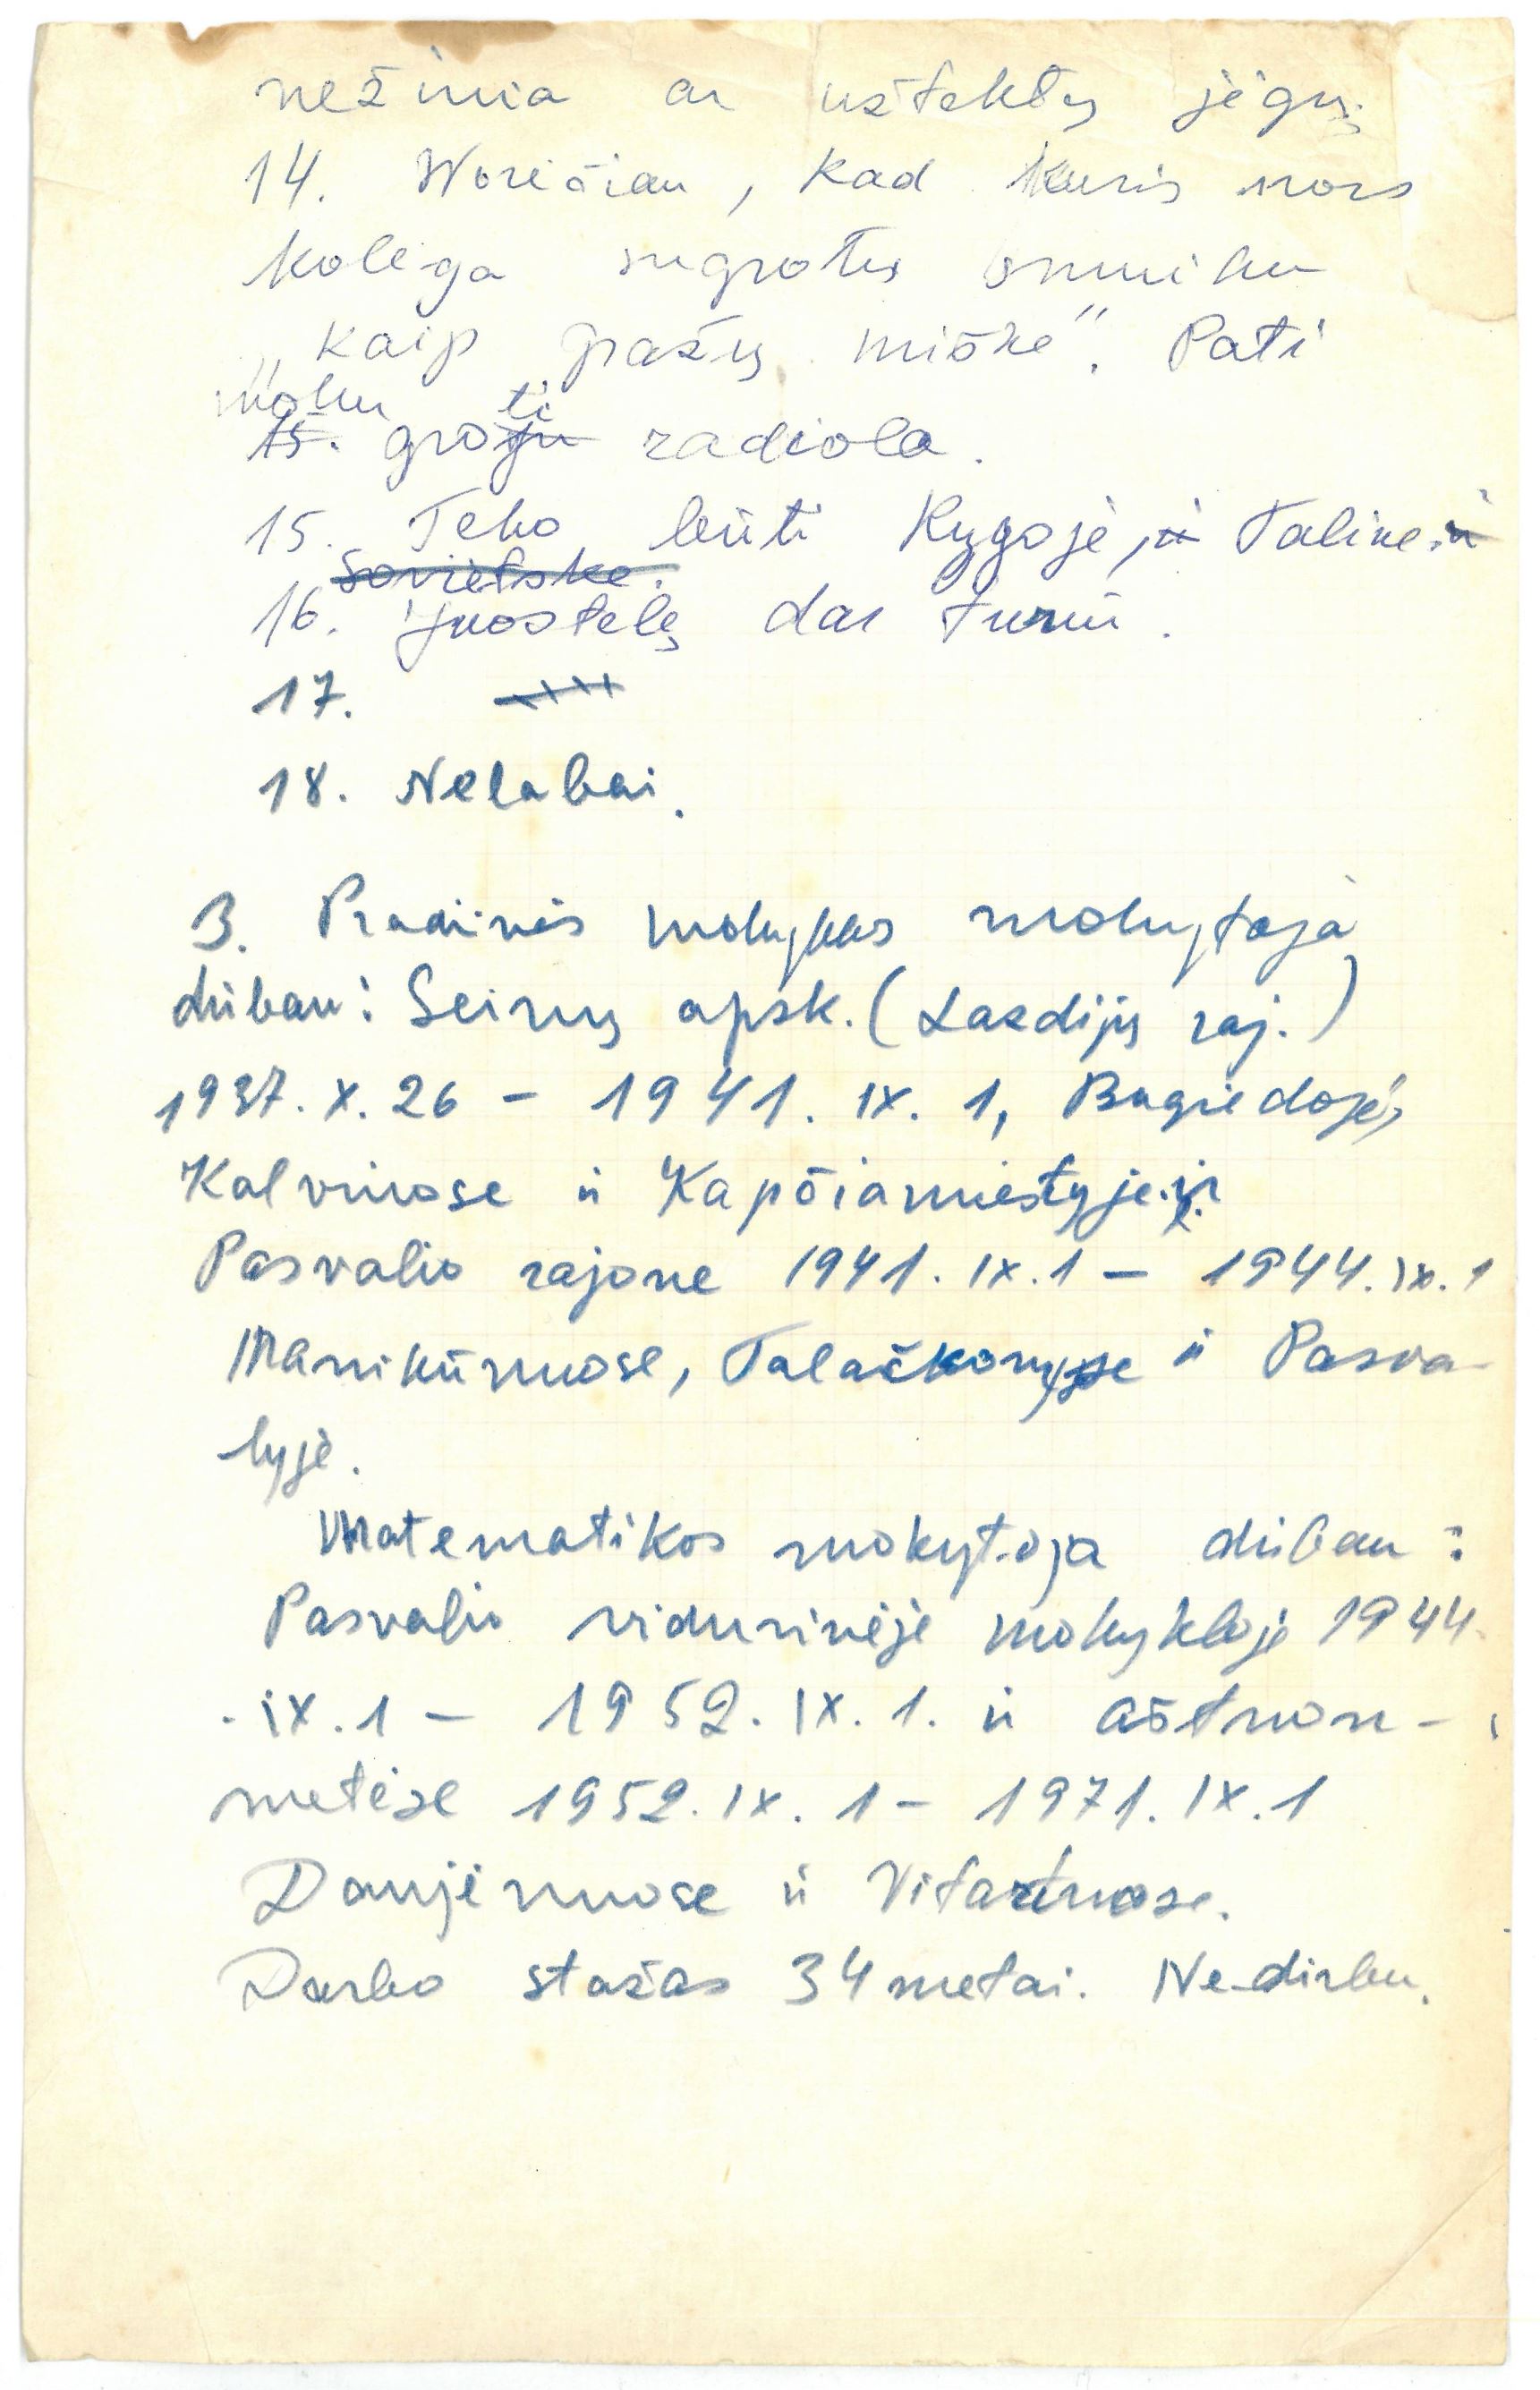 nežinia ar užtektų jėgų.
14. Norėčiau, kad kuris nors
kolega sugrotų smuiku
„kaip gražu miške". Pati
moku
15. groju ti radiola.
15. Teko būti Rygoje, ir Taline. ir
Sovietske.
16. Juostelę dar turiu.
17.
18. Nelabai.
3. Pradinės mokyklos mokytoja
dirbau: Seinų apsk. (Lazdijų raj.)
1937. X. 26 – 1941. IX. 1, Bugiedoje,
Kalvinose ir Kapčiamiestyje. ir
Pasvalio rajone 1941. IX. 1 – 1944. IX. 1
Manikūnuose, Talačkonyse ir Pasva-
lyje.
Matematikos mokytoja dirbau:
Pasvalio vidurinėje mokykloje 1944.
. IX. 1 – 1952. IX. 1. ir aštuon-
metėse 1952. IX. 1 – 1971. IX. 1
Daujėnuose ir Vitartuose.
Darbo stažas 34 metai. Ne-dirbu.